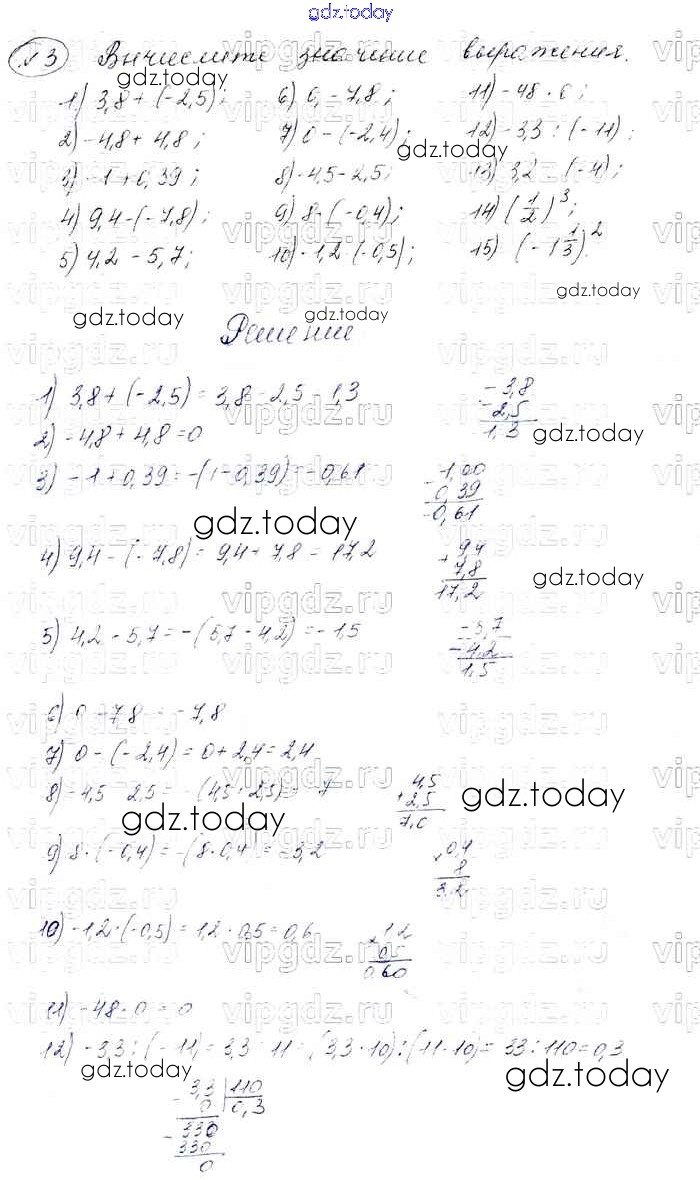 gdz.today
№3 Вычислите значение выражения.
1) 3,8 + (-2,5); 6) 0 - 7,8; 11) -48 · 0;
2) -4,8 + 4,8; 7) 0 - (-2,4); 12) -3,3 : (-11);
3) -1 + 0,39; 8) -4,5 - 2,5; 13) 3,2 (-4);
4) 9,4 - (-7,8); 9) 8 · (-0,4); 14) (1/2)³;
5) 4,2 - 5,7; 10) -1,2 · (-0,5); 15) (-1 1/3)².
Решение
1) 3,8 + (-2,5) = 3,8 - 2,5 = 1,3
3,8
2,5
1,3
2) -4,8 + 4,8 = 0
3) -1 + 0,39 = -(1 - 0,39) = -0,61
1,00
0,39
0,61
4) 9,4 - (-7,8) = 9,4 + 7,8 = 17,2
+ 9,4
7,8
17,2
5) 4,2 - 5,7 = -(5,7 - 4,2) = -1,5
5,7
4,2
1,5
6) 0 - 7,8 = -7,8
7) 0 - (-2,4) = 0 + 2,4 = 2,4
8) -4,5 - 2,5 = -(4,5 + 2,5) = -7
+ 4,5
2,5
7,0
9) 8 · (-0,4) = -(8 · 0,4) = -3,2
0,4
8
3,2
10) -1,2 · (-0,5) = 1,2 · 0,5 = 0,6
1,2
0,5
0,60
11) -48 · 0 = 0
12) -3,3 : (-11) = 3,3 : 11 = (3,3 · 10) : (11 · 10) = 33 : 110 = 0,3
3,3 | 110
0 0,3
330
330
0
vipgdz.ru